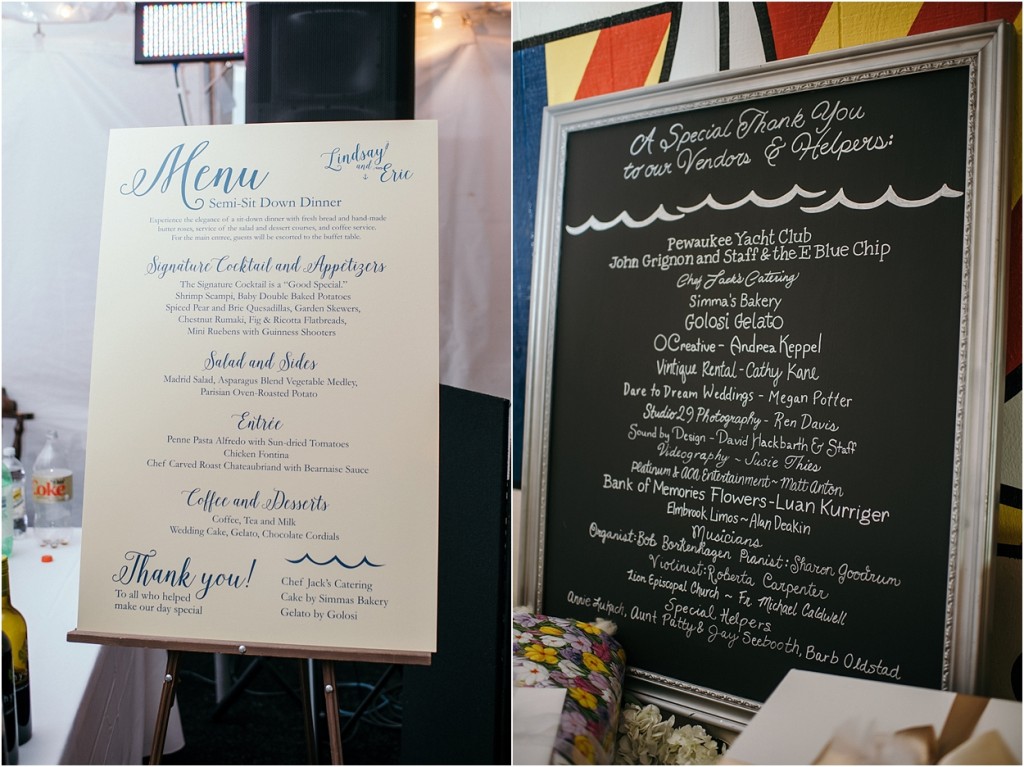 Menu
Lindsay
and
Eric
Semi-Sit Down Dinner
Experience the elegance of a sit-down dinner with fresh bread and hand-made
butter roses, service of the salad and dessert courses, and coffee service.
For the main entree, guests will be escorted to the buffet table.
Signature Cocktail and Appetizers
The Signature Cocktail is a "Good Special."
Shrimp Scampi, Baby Double Baked Potatoes
Spiced Pear and Brie Quesadillas, Garden Skewers,
Chestnut Rumaki, Fig & Ricotta Flatbreads,
Mini Ruebens with Guinness Shooters
Salad and Sides
Madrid Salad, Asparagus Blend Vegetable Medley,
Parisian Oven-Roasted Potato
Entrée
Penne Pasta Alfredo with Sun-dried Tomatoes
Chicken Fontina
Chef Carved Roast Chateaubriand with Bearnaise Sauce
Coffee and Desserts
Coffee, Tea and Milk
Wedding Cake, Gelato, Chocolate Cordials
Thank you!
To all who helped
make our day special
Chef Jack's Catering
Cake by Simmas Bakery
Gelato by Golosi
Coke
A Special Thank You
to our Vendors & Helpers:
Pewaukee Yacht Club
John Grignon and Staff & the E Blue Chip
Chef Jack's Catering
Simma's Bakery
Golosi Gelato
OCreative - Andrea Keppel
Vintique Rental - Cathy Kane
Dare to Dream Weddings - Megan Potter
Studio 29 Photography - Ren Davis
Sound by Design - David Hackbarth & Staff
Videography - Susie Thies
Platinum & ACA Entertainment - Matt Anton
Bank of Memories Flowers - Luan Kurriger
Elmbrook Limos - Alan Deakin
Musicians
Organist: Bob Bortenhagen Pianist: Sharon Goodrum
Violinist: Roberta Carpenter
Zion Episcopal Church ~ Fr. Michael Caldwell
Special Helpers
Annie Aunt Patty & Jay Seebooth, Barb Oldstad